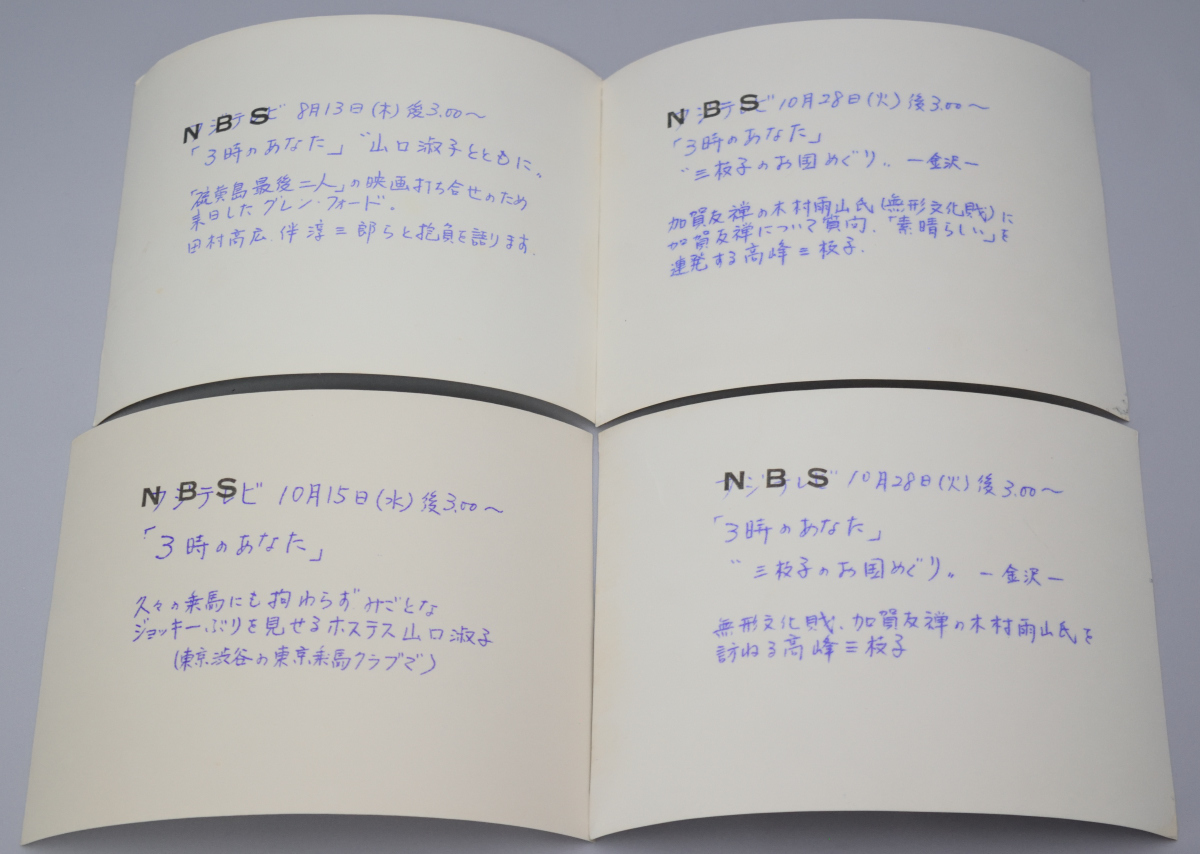 NBS
フジテレビ 8月13日(木)後3.00〜
「3時のあなた」“山口淑子とともに〟
「硫黄島最後二人」の映画打ち合せのため
来日したグレン・フォード。
田村高広、伴淳三郎らと抱負を語ります.
NBS
フジテレビ 10月28日(火)後3.00〜
「3時のあなた」
“三枝子のお国めぐり〟 ー金沢ー
加賀友禅の木村雨山氏(無形文化財)に
加賀友禅について質問.「素晴らしい」を
連発する高峰三枝子.
NBS
フジテレビ 10月15日(水)後3.00〜
「3時のあなた」
久々の乗馬にも拘わらず みごとな
ジョッキーぶりを見せるホステス山口淑子
(東京渋谷の東京乗馬クラブで)
NBS
フジテレビ 10月28日(火)後3.00〜
「3時のあなた」
“三枝子のお国めぐり〟 ー金沢ー
無形文化財、加賀友禅の木村雨山氏を
訪ねる高峰三枝子